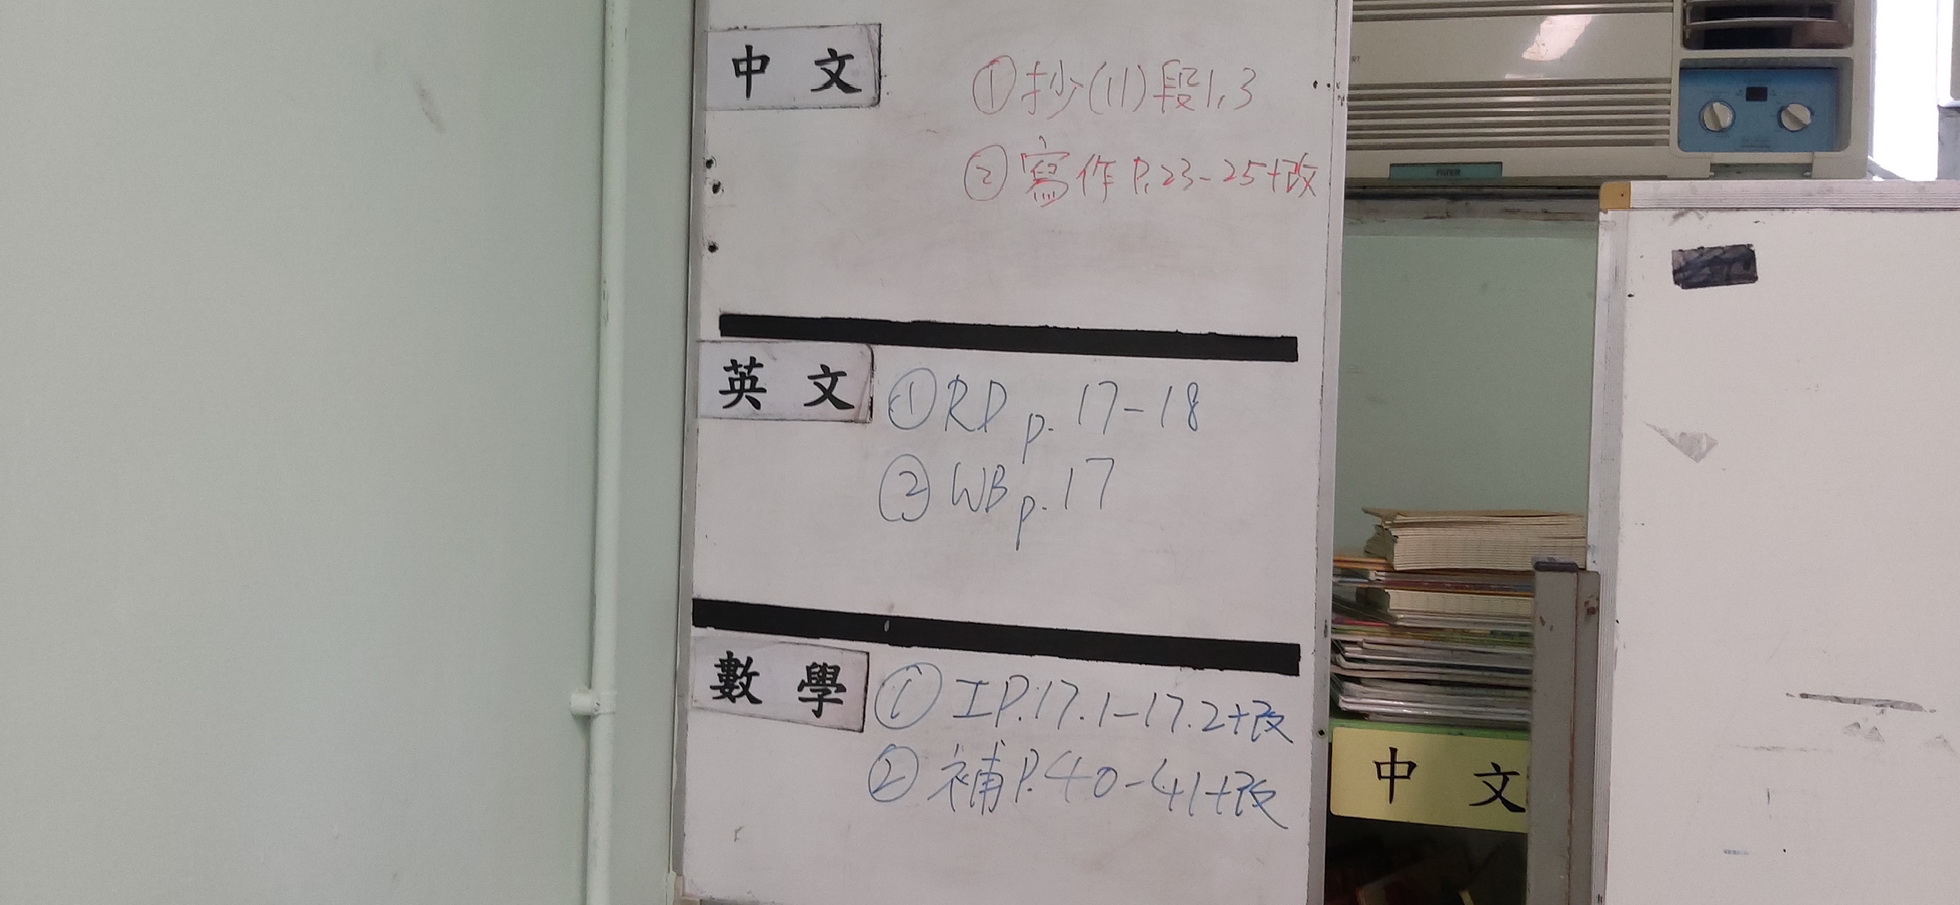 中 文
①抄(11)段1,3
②寫作P.23-25+改
英 文
①RD p.17-18
②WB p.17
數 學
①工P.17.1-17.2+改
②補P.40-41+改
中 文